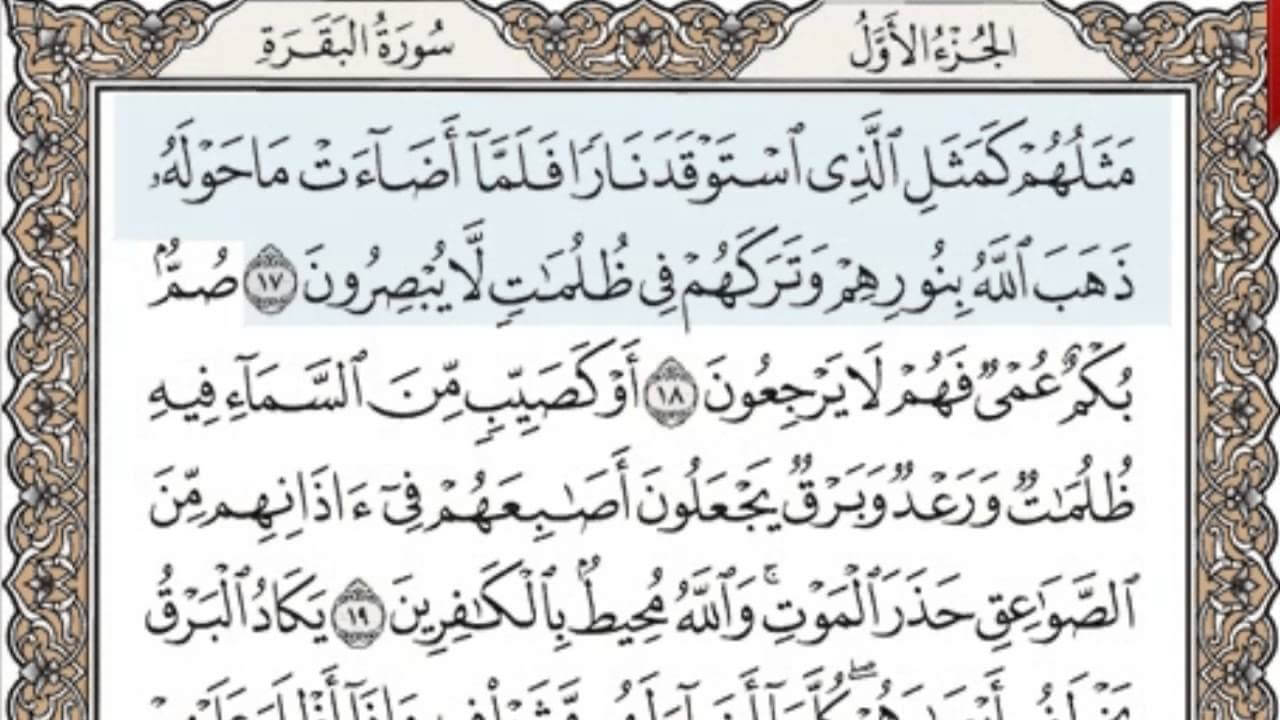 الجُزْءُ الأَوَّلُ
سُورَةُ البَقَرَةِ
مَثَلُهُمْ كَمَثَلِ ٱلَّذِى ٱسْتَوْقَدَ نَارًا فَلَمَّآ أَضَآءَتْ مَا حَوْلَهُۥ
ذَهَبَ ٱللَّهُ بِنُورِهِمْ وَتَرَكَهُمْ فِى ظُلُمَٰتٍ لَّا يُبْصِرُونَ ١٧ صُمٌّۢ
بُكْمٌ عُمْىٌ فَهُمْ لَا يَرْجِعُونَ ١٨ أَوْ كَصَيِّبٍ مِّنَ ٱلسَّمَآءِ فِيهِ
ظُلُمَٰتٌ وَرَعْدٌ وَبَرْقٌ يَجْعَلُونَ أَصَٰبِعَهُمْ فِىٓ ءَاذَانِهِم مِّنَ
ٱلصَّوَٰعِقِ حَذَرَ ٱلْمَوْتِ ۚ وَٱللَّهُ مُحِيطٌۢ بِٱلْكَٰفِرِينَ ١٩ يَكَادُ ٱلْبَرْقُ